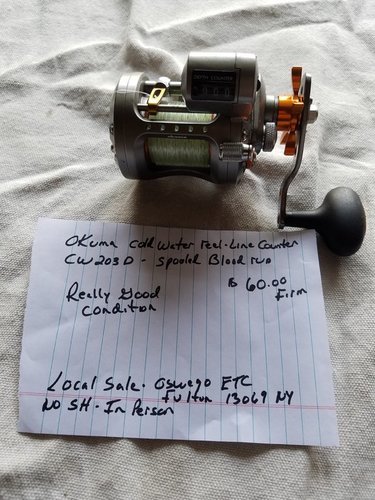 DEPTH COUNTER
OKuma Cold Water reel-Line Counter
CW203D - Spooled Blood run
$ 60.00
Firm
Really Good
condition
Local Sale. Oswego ETC
Fulton 13069 NY
NO SH - In Person